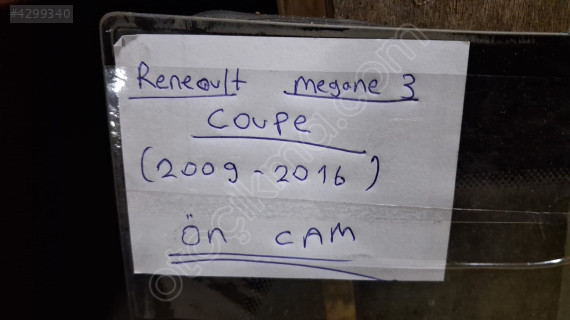 #4299340
Reneault megane 3
COUPE
(2009-2016)
Ön CAM
otocikma.com